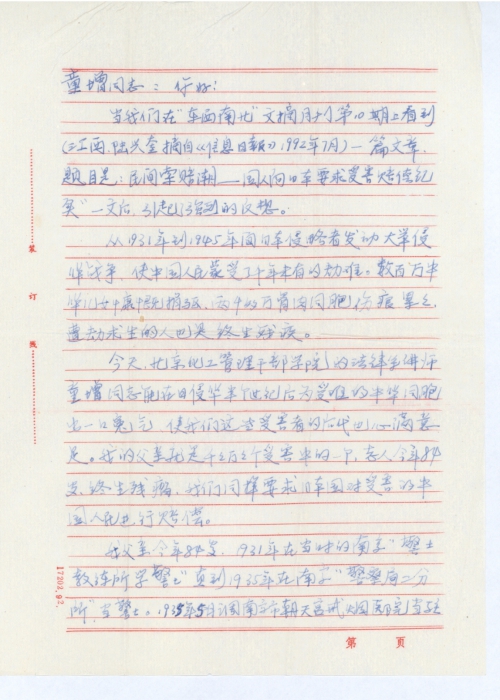 童增同志：你好！
当我们在"东西南北"文摘月刊第10期上看到
(江南、陆兴奎摘自《信息日报》1992年7月)一篇文章，
题目是：民间索赔潮——国人向日本要求受害赔偿纪
实"一文后，引起强烈的反想。
从1931年到1945年间日本侵略者发动大举侵
华战争，使中国人民蒙受了千年未有的劫难。数百万中
华儿女中 捐躯，两千的万骨肉同胞伤痕累累，
遭劫求生的人已是终生残疾。
今天，北京化工管理干部学院的法律系讲师
童增同志能在日侵华半个世纪后为受难的中华同胞
出一口冤气，使我们这些受害者的后代已心满意
足。我的父亲就是千百万个受害中的一个，老人今年84
岁，终生残疾，我们同样要求日本国对受害的中
国人民进行赔偿。
我父亲今年84岁，1931年在当时的南京"警士
教练所学警士"直到1935年在南京"警察局二分
所"当警士。1935年5月 南京市朝天宫 医院当
17203.92.
装 订 线
第 页